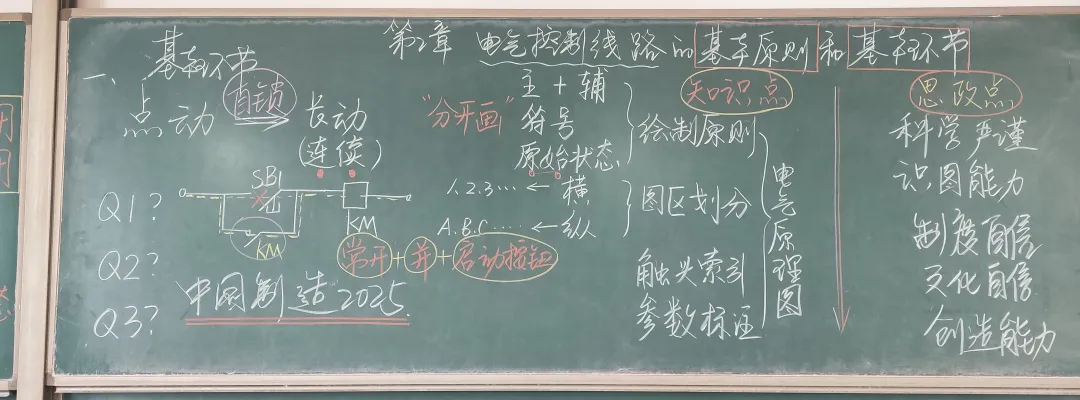 第2章 电气控制线路的基本原则和基本环节
一、基本环节
点动 自锁 长动
(连续)
SB1
KM
KM
常开+并+启动按钮
Q1?
Q2?
Q3?
中国制造2025
"分开画"
主+辅
符号
原始状态
绘制原则
1.2.3… ← 横
A.B.C… ← 纵
图区划分
触头索引
参数标注
电气原理图
知识点
思政点
科学严谨
识图能力
制度自信
文化自信
创造能力